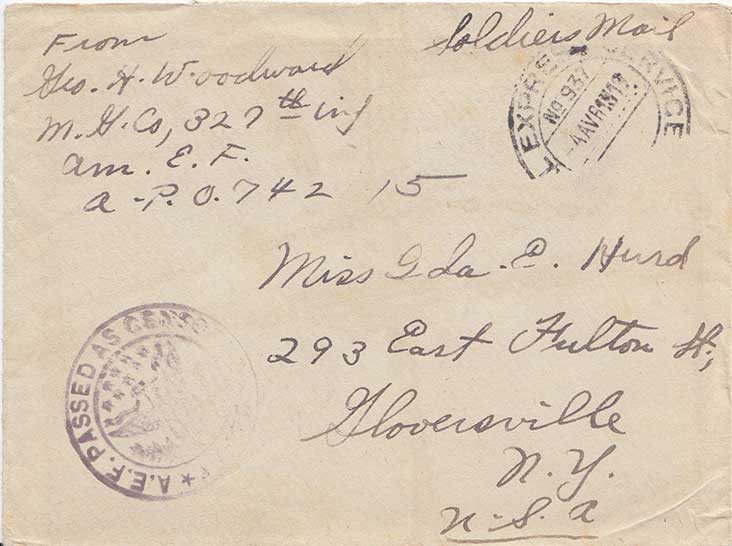 From
Geo. H. Woodward
M. G. Co, 327th inf
am. E. F.
a-P. O. 742 15
Soldiers Mail
EXPRESS SERVICE
No 937
4 AVR 1919
Miss Ida. E. Hurd
293 East Fulton St,
Gloversville
N. Y.
U-S. a
A.E.F. PASSED AS CENSO